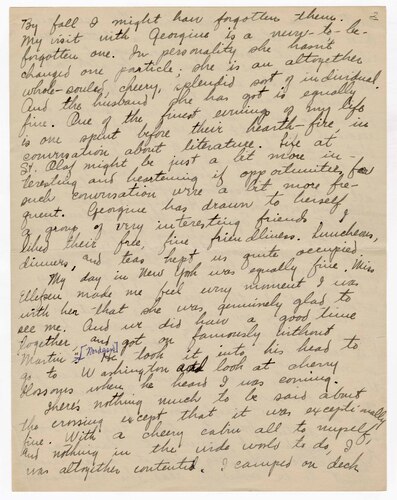 By fall I might have forgotten them.
My visit with Georgine is a never-to-be-
forgotten one. In personality she hasn't
changed one particle; she is an altogether
whole-souled, cheery, splendid sort of individual.
And the husband she has got is equally
fine. One of the finest evenings of my life
is one spent before their hearth-fire, in
conversation about literature. Life at
St. Olaf might be just a bit more in-
teresting and heartening if opportunities for
such conversation were a bit more fre-
quent. Georgine has drawn to herself
a group of very interesting friends. I
liked their free, fine friendliness. Luncheons,
dinners, and teas kept us quite occupied.
My day in New York was equally fine. Miss
Ellefsen made me feel every moment I was
with her that she was genuinely glad to
see me. And we did have a good time
together and got on famously without
Martin. [Nordgard] He took it into his head to
go to Washington and look at cherry
blossoms when he heard I was coming.
There's nothing much to be said about
the crossing except that it was exceptionally
fine. With a cheery cabin all to myself,
and nothing in the wide world to do, I
was altogether contented. I camped on deck